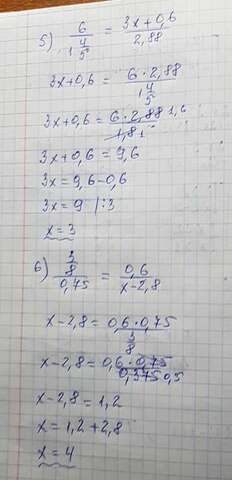 5) 6 / 1 4/5 = 3x+0,6 / 2,88
3x+0,6 = 6·2,88 / 1 4/5
3x+0,6 = 6·2,88 1,6 / 1,8 1
3x+0,6 = 9,6
3x = 9,6-0,6
3x = 9 |:3
x = 3
6) 3/8 / 0,75 = 0,6 / x-2,8
x-2,8 = 0,6·0,75 / 3/8
x-2,8 = 0,6·0,75 / 0,375 0,5
x-2,8 = 1,2
x = 1,2+2,8
x = 4